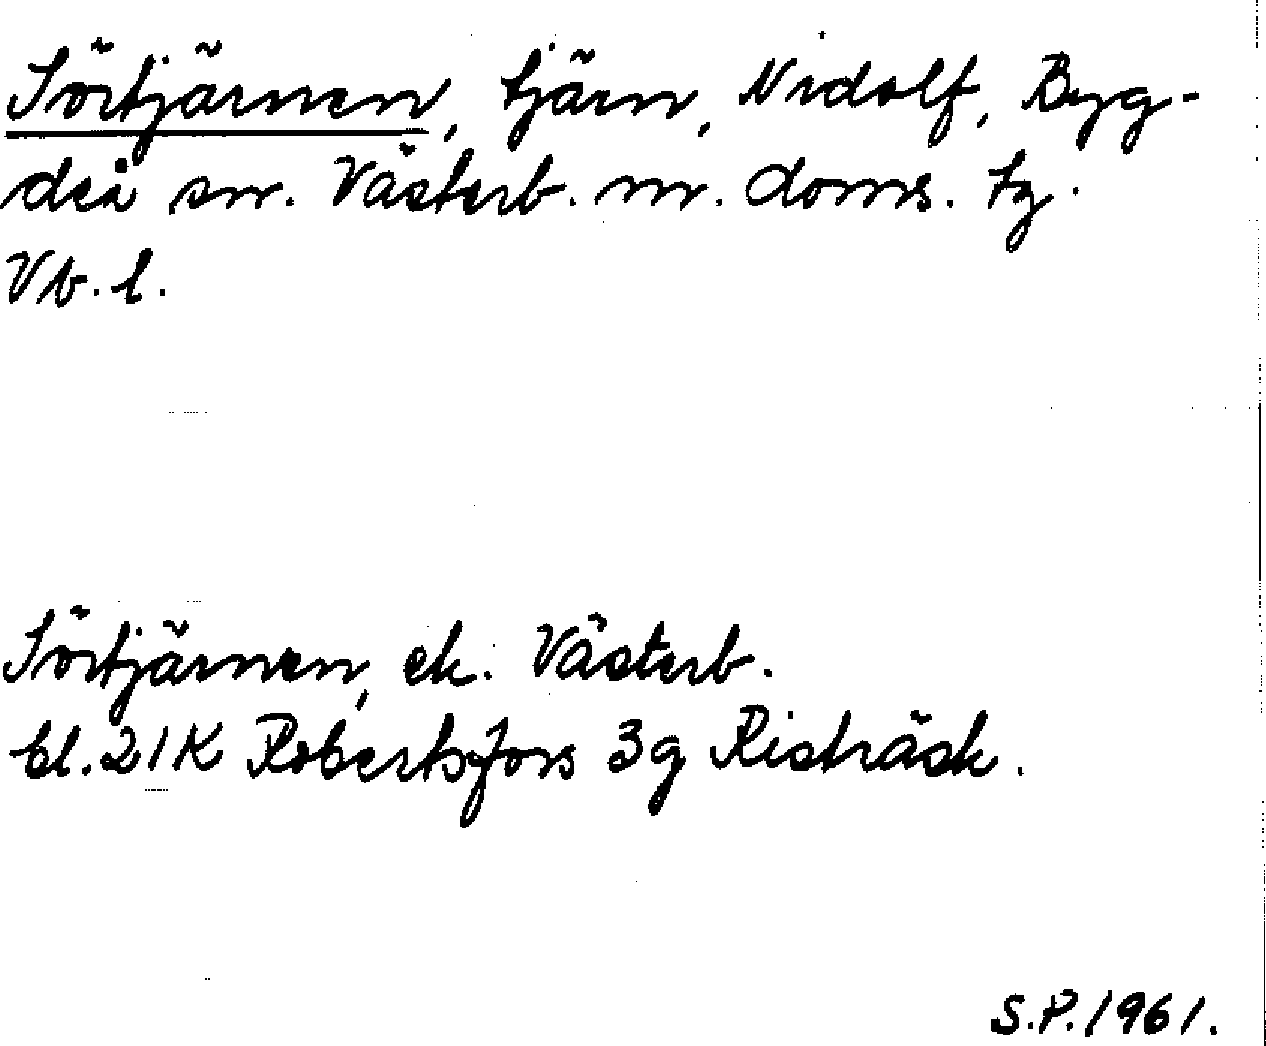 Sörtjärnen, tjärn, Nidolf, Byg-
deå sn. Västerb. m. doms. tg.
Vb. l.
Sörtjärnen, ek. Västerb.
bl. 21K Robertsfors 3g Risträsk.
S.P. 1961.